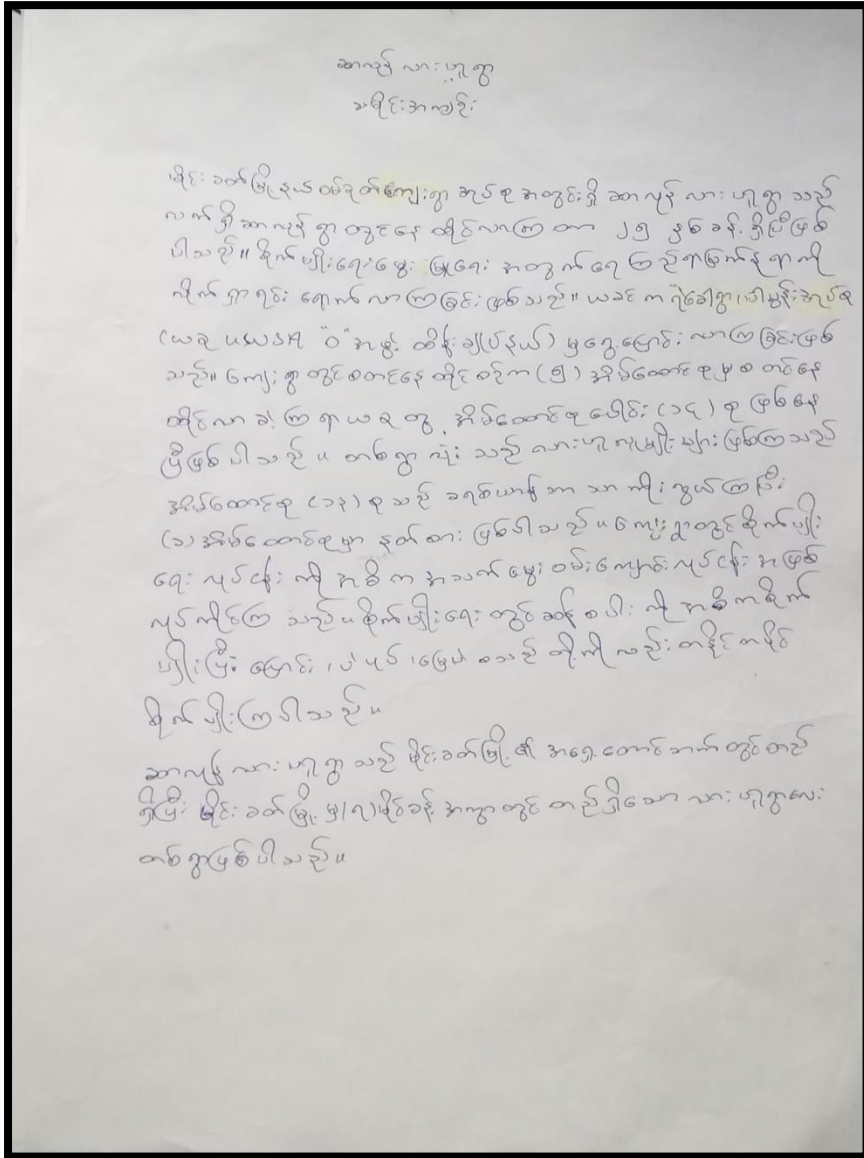 ဆာလုန် လားဟူရွာ
သမိုင်းအကျဉ်း
မိုင်းခတ်မြို့နယ်ဝမ်ခုတ်ကျေးရွာအုပ်စုအတွင်းရှိ ဆာလုန် လားဟူရွာသည်
လက်ရှိဆာလုန်ရွာတွင်နေထိုင်လာကြတာ ၂၅ နှစ်ခန့်ရှိပြီဖြစ်
ပါသည်။ စိုက်ပျိုးရေးမွေးမြူရေး အတွက်ရေကြည်ရာမြက်နုရာကို
လိုက်ရှာရင်း ရောက်လာကြခြင်းဖြစ်သည်။ ယခင်က
(ယခု UWSA "ဝ" အဖွဲ့ ထိန်းချုပ်နယ်) မှရွှေ့ပြောင်းလာကြခြင်းဖြစ်
သည်။ ကျေးရွာတွင်စတင်နေထိုင်စဉ်က (၅) အိမ်ထောင်စုမှစတင်နေ
ထိုင်လာခဲ့ကြရာယခုတွင် အိမ်ထောင်စုပေါင်း (၁၄) စု ဖြစ်နေ
ပြီဖြစ်ပါသည်။ တစ်ရွာလုံးသည် လားဟူလူမျိုးများဖြစ်ကြသည်
အိမ်ထောင်စု (၁၃) စုသည် ခရစ်ယာန်ဘာသာကိုးကွယ်ကြပြီး
(၁) အိမ်ထောင်စုမှာ နတ်စားဖြစ်ပါသည်။ ကျေးရွာတွင်စိုက်ပျိုး
ရေးလုပ်ငန်းကို အဓိက အသက်မွေးဝမ်းကျောင်းလုပ်ငန်းအဖြစ်
လုပ်ကိုင်ကြသည်။ စိုက်ပျိုးရေးတွင်ဆန်စပါးကို အဓိကစိုက်
ပျိုးပြီး ပြောင်း၊ ပဲပုပ်၊ မြေပဲ စသည်တို့ကိုလည်းတနိုင်တပိုင်
စိုက်ပျိုးကြပါသည်။
ဆာလုန် လားဟူရွာသည် မိုင်းခတ်မြို့၏ အရှေ့တောင်ဘက်တွင်တည်
ရှိပြီး မိုင်းခတ်မြို့မှ (၇) မိုင်ခန့်အကွာတွင်တည်ရှိသော လားဟူရွာလေး
တစ်ရွာဖြစ်ပါသည်။